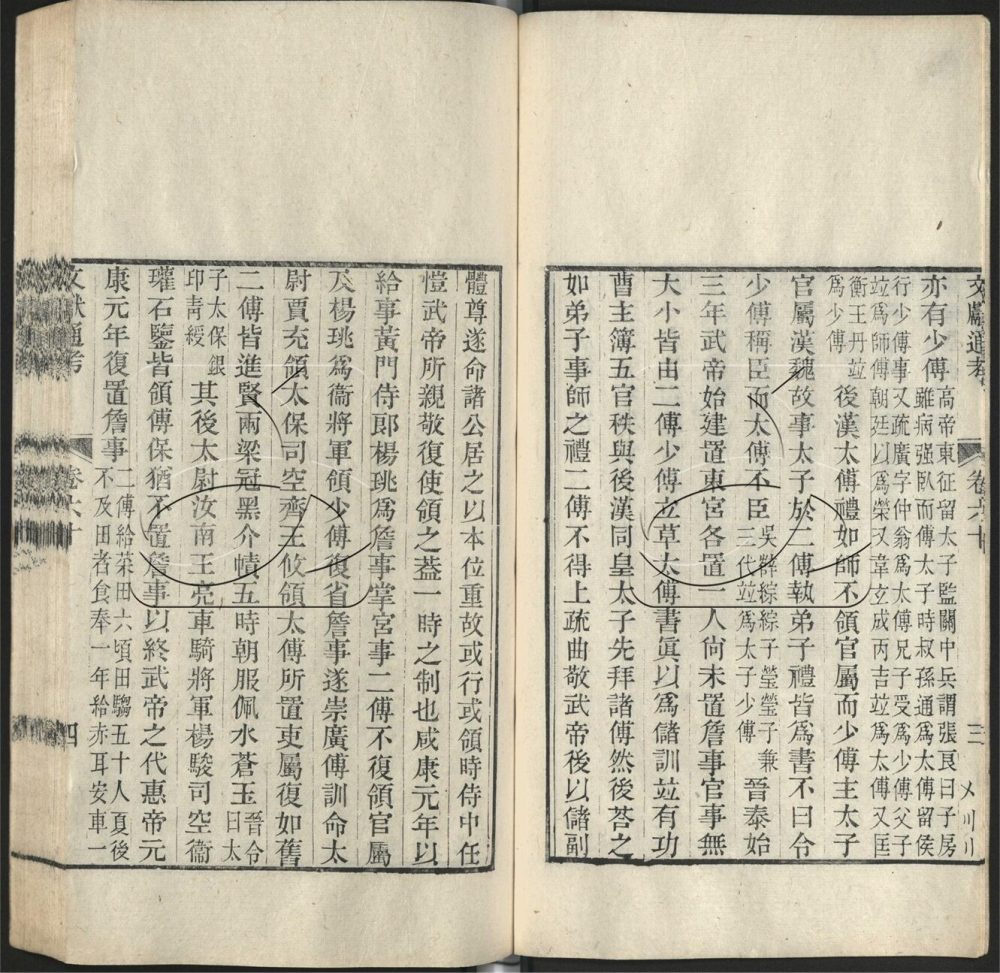 文獻通考 卷六十 三
亦有少傅高帝東征留太子監關中兵謂張良曰子房
雖病强臥而傅太子時叔孫通爲太傅留侯
行少傅事又疏廣字仲翁爲太傅兄子受爲少傅父子
竝爲師傅朝廷以爲榮又韋玄成丙吉竝爲太傅又匡
衡王丹竝
爲少傅
後漢太傅禮如師不領官屬而少傅主太子
官屬漢魏故事太子於二傅執弟子禮皆爲書不曰令
少傅稱臣而太傅不臣吳薛綜綜子瑩瑩子兼
三代竝爲太子少傅
晉泰始
三年武帝始建置東宮各置一人尚未置詹事官事無
大小皆由二傅少傅立草太傅書眞以爲儲訓竝有功
曹主簿五官秩與後漢同皇太子先拜諸傅然後荅之
如弟子事師之禮二傅不得上疏曲敬武帝後以儲副
體尊遂命諸公居之以本位重故或行或領時侍中任
愷武帝所親敬復使領之蓋一時之制也咸康元年以
給事黃門侍郎楊珧爲詹事掌宮事二傅不復領官屬
及楊珧爲衞將軍領少傅復省詹事遂崇廣傅訓命太
尉賈充領太保司空齊王攸領太傅所置吏屬復如舊
二傅皆進賢兩梁冠黑介幘五時朝服佩水蒼玉晉令
曰太
子太保銀
印靑綬
其後太尉汝南王亮車騎將軍楊駿司空衞
瓘石鑒皆領傅保猶不置詹事以終武帝之代惠帝元
康元年復置詹事二傅給菜田六頃田騶五十人夏後
不及田者食奉一年給赤耳安車一
文獻通考 卷六十 四